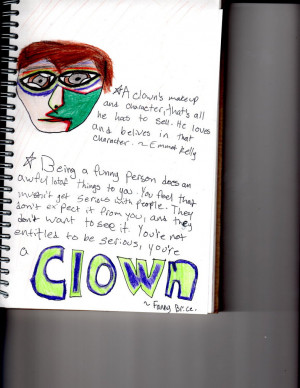 ☆ A clown's makeup
and character, that's all
he has to sell. He loves
and belives in that
character. ~ Emmet Kelly
☆ Being a funny person does an
awful lot of things to you. You feel that
mustn't get serious with people. They
don't expect it from you, and they
don't want to see it. You're not
entitled to be serious, you're
a Clown
~ Fanny Brice.